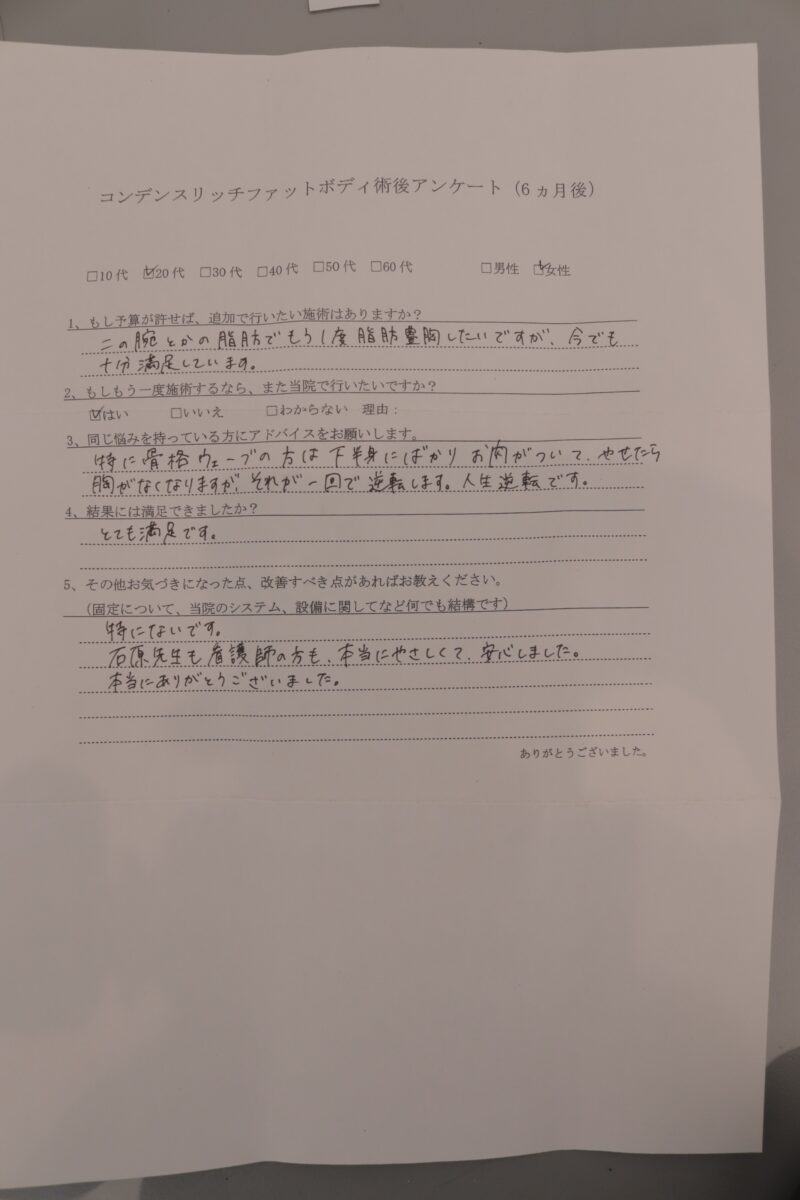 コンデンスリッチファットボディ術後アンケート（6ヵ月後）
□10代 ☑20代 □30代 □40代 □50代 □60代 □男性 ☑女性
1、もし予算が許せば、追加で行いたい施術はありますか？
二の腕とかの脂肪でもう1度脂肪豊胸したいですが、今でも
十分満足しています。
2、もしもう一度施術するなら、また当院で行いたいですか？
☑はい □いいえ □わからない 理由：
3、同じ悩みを持っている方にアドバイスをお願いします。
特に骨格ウェーブの方は下半身にばかりお肉がついて、やせたら
胸がなくなりますが、それが一回で逆転します。人生逆転です。
4、結果には満足できましたか？
とても満足です。
5、その他お気づきになった点、改善すべき点があればお教えください。
（固定について、当院のシステム、設備に関してなど何でも結構です）
特にないです。
石原先生も看護師の方も、本当にやさしくて、安心しました。
本当にありがとうございました。
ありがとうございました。